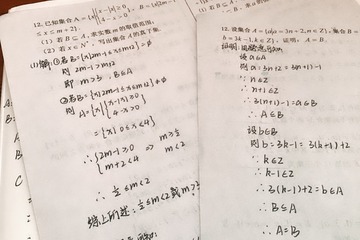 12. 已知集合A={x|
≤x≤m+2}.
(1) 若B⊆A, 求实数m的取值范围;
(2) 若x∈N*, 写出集合A的真子集.
(1)解: ①若B={x|2m-1≤x≤m+2}=∅
则 2m-1>m+2
即 m>3, B⊆A
②若B={x|2m-1≤x≤m+2}≠∅
则A={x|
4-x>0}
={x|0≤x<4}
∴ {2m-1≥0 ⇒ m≥½
m+2<4 m<2
∴ ½≤m<2
综上所述: ½≤m<2或m>3
12. 设集合A={a|a=3n+2, n∈Z}, 集合B=
b=3k-1, k∈Z}, 证明: A=B.
设a∈A
则a=3n+2=3(n+1)-1
∵ n∈Z
∴ n+1∈Z
∴ 3(n+1)-1=a∈B
∴ A⊆B
设b∈B
则b=3k-1=3(k-1)+2
∵ k∈Z
∴ k-1∈Z
∴ 3(k-1)+2=b∈A
∴ B⊆A
∴ A=B